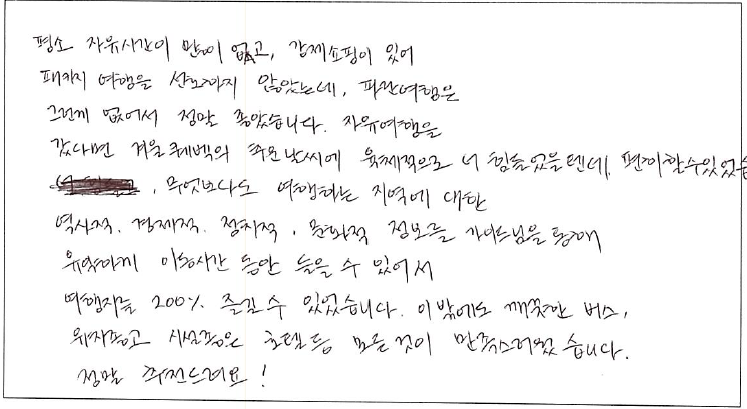 평소 자유시간이 많이 없고, 강제쇼핑이 있어
패키지 여행을 선호하지 않았는데, 파란여행은
그런게 없어서 정말 좋았습니다. 자유여행을
갔다면 겨울 퀘벡의 추운날씨에 육체적으로 더 힘들었을텐데, 편히할수있었습
, 무엇보다도 여행하는 지역에 대한
역사적, 경제적, 정치적, 문화적 정보를 가이드님을 통해
유익하게 이동시간 동안 들을 수 있어서
여행지를 200% 즐길 수 있었습니다. 이 밖에도 깨끗한 버스,
위치좋고 시설좋은 호텔 등 모든 것이 만족스러웠습니다.
정말 추천드려요!